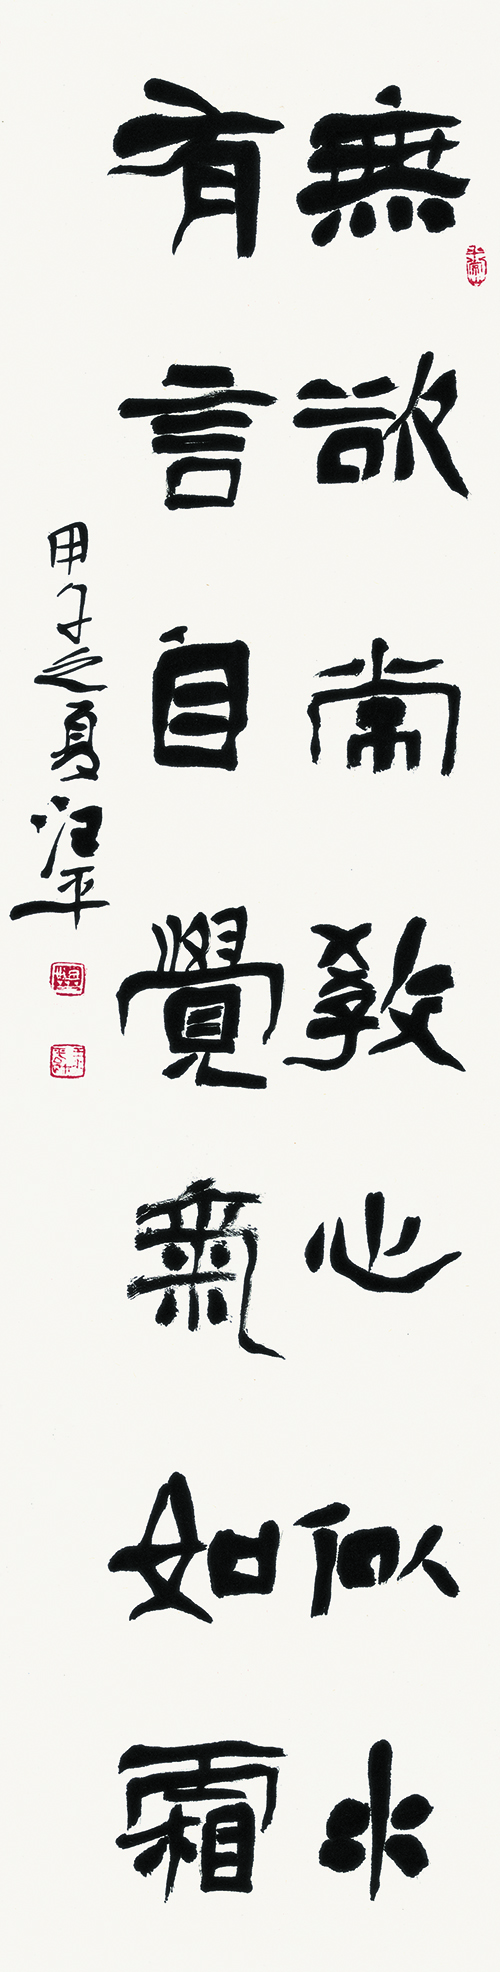 無欲常教心似水
有言自覺氣如霜
甲子之夏汪平